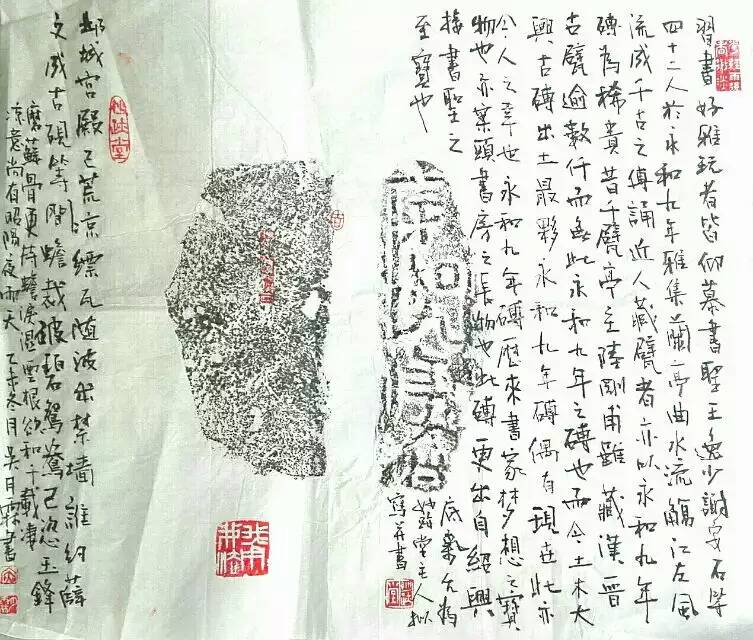 習書好雅玩者皆仰慕書聖王逸少謝安石等
四十二人於永和九年雅集蘭亭曲水流觴江左風
流成千古之傳誦近人藏甓者亦以永和九年
磚為稀貴昔千甓亭主陸剛甫雖藏漢晉
古甓逾數仟而無此永和九年之磚也而今土木大
興古磚出土最夥永和九年磚偶有現世此亦
今人之幸也永和九年磚歷來書家夢想之寶
物也亦案頭書房之長物也此磚更出自紹興
據書聖之
至寶也
寫并書
永和九年
鄴城宮殿已荒涼縹瓦隨波出禁墻誰約薛
文成古硯等閒蟾裁破碧鴛鴦已恣玉鋒
磨蘇骨更持蟾淚濕雲根欲和千載淒
涼意尚有昭陽夜雨天
乙未冬月吳月霖書